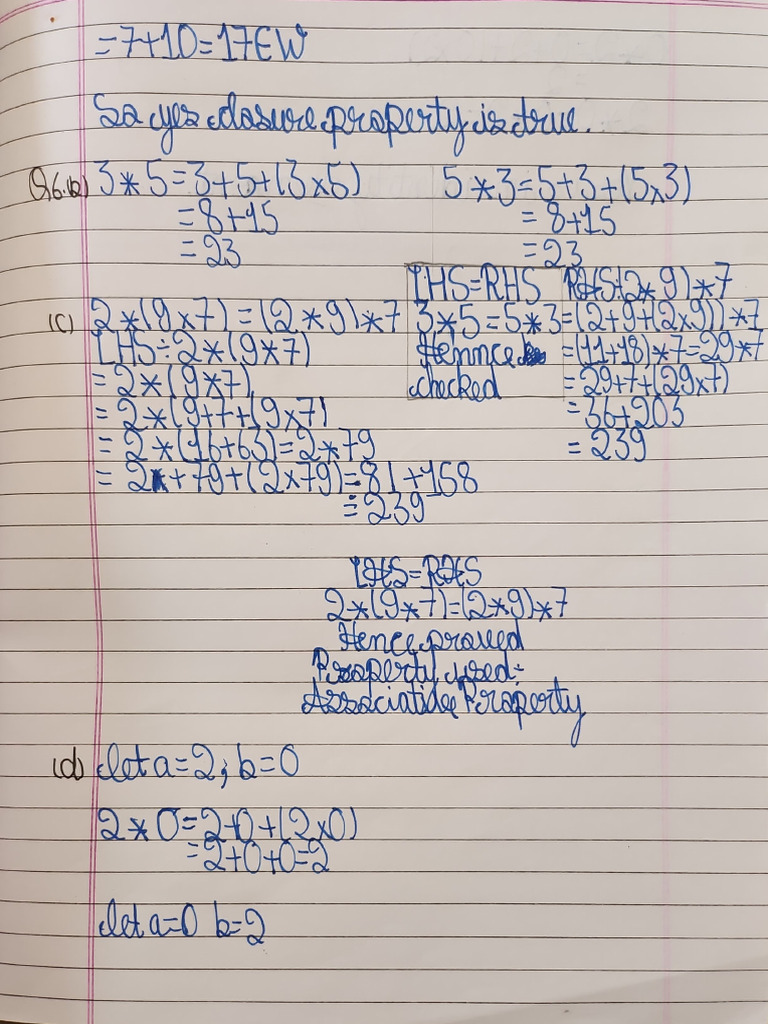 =7+10=17EW
So yes closure property is true.
Q6.b) 3*5=3+5+(3×5)
=8+15
=23
5*3=5+3+(5×3)
=8+15
=23
LHS=RHS
3*5=5*3
Hennce
checked
(c) 2*(9×7)=(2*9)*7
LHS÷2*(9*7)
=2*(9*7)
=2*(9+7+(9×7)
=2*(16+63)=2*79
=2+79+(2×79)=81+158
=239
RHS÷(2*9)*7
=(2+9+(2×9))*7
=(11+18)*7=29*7
=29+7+(29×7)
=36+203
=239
LHS=RHS
2*(9*7)=(2*9)*7
Hence proved
Property used:-
Associative Property
(d) let a=2, b=0
2*0=2+0+(2×0)
=2+0+0=2
let a=0 b=2